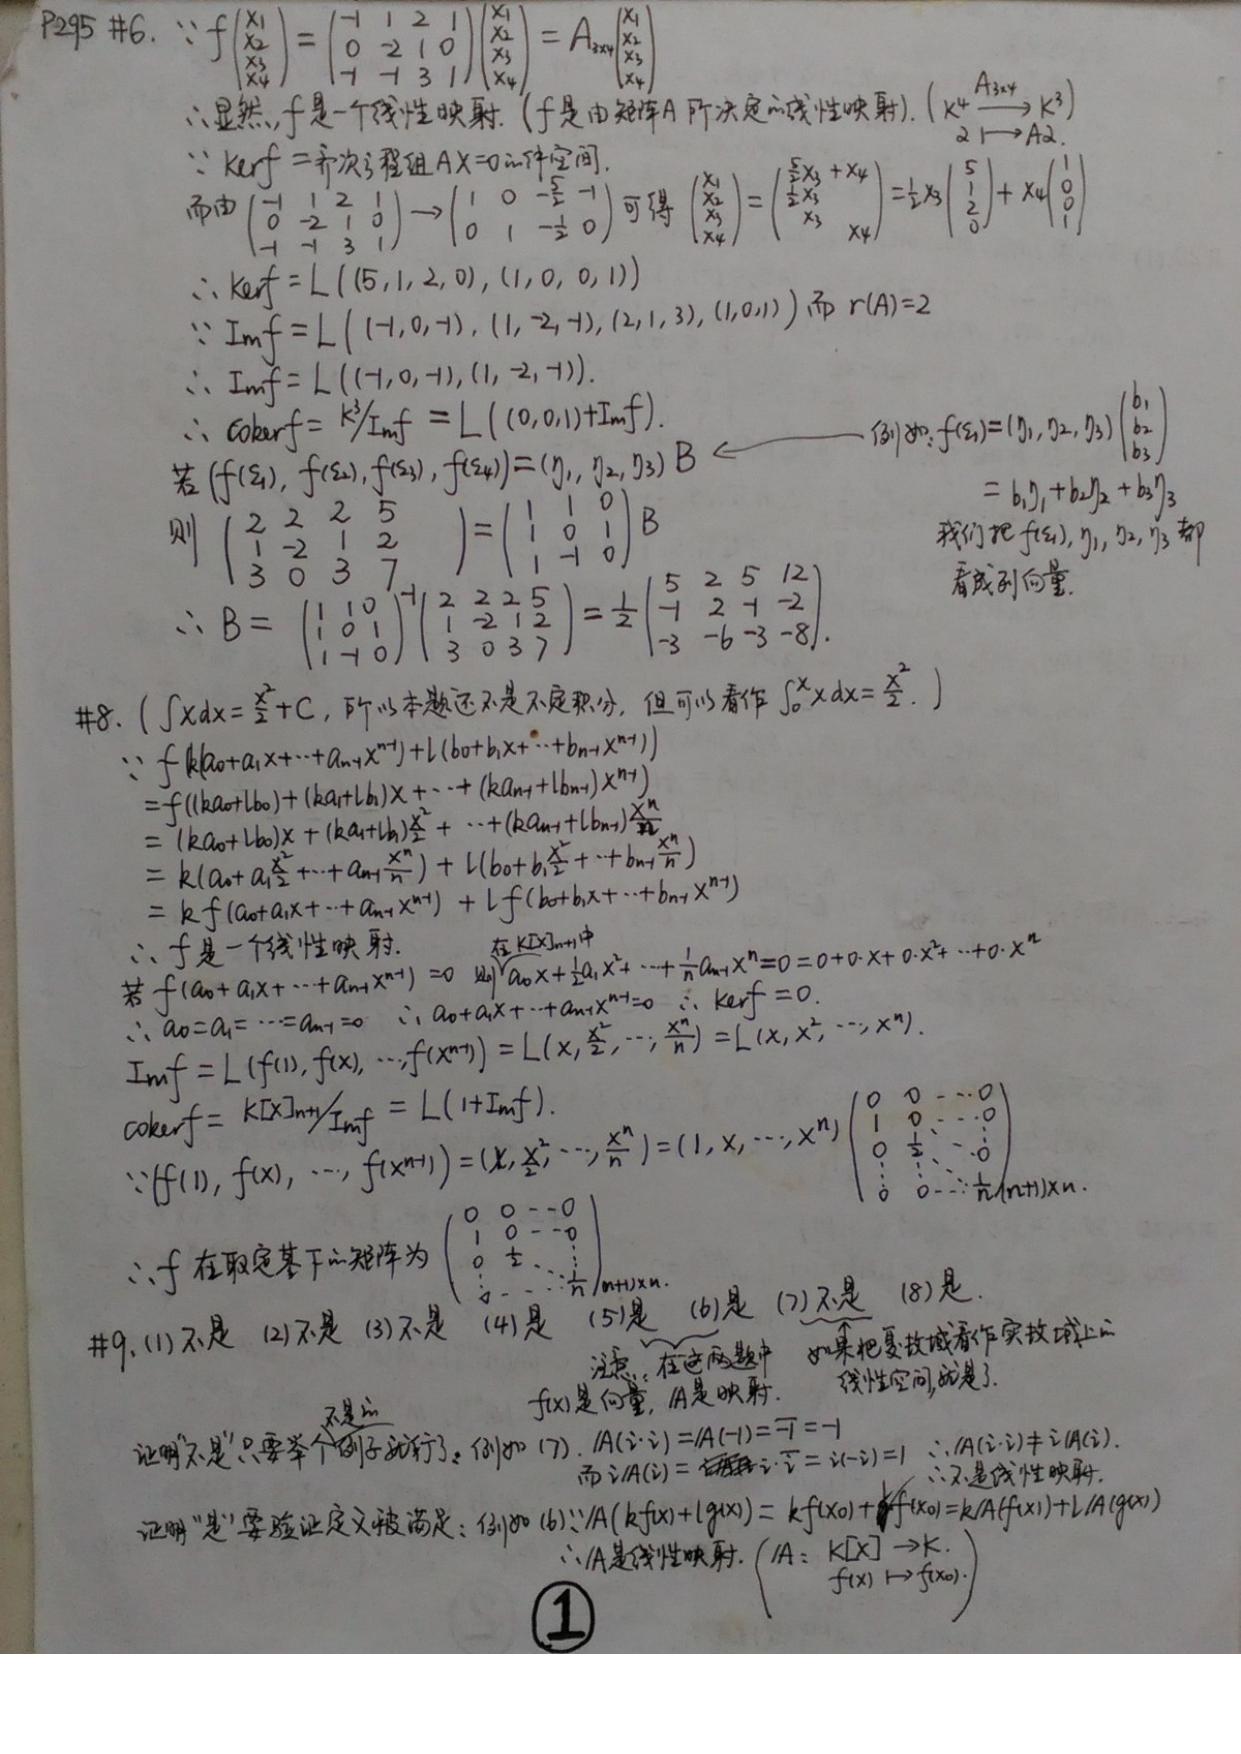 P295 #6. ∵ f(x₁ x₂ x₃ x₄) = (-1 1 2 1; 0 -2 1 0; -1 -1 3 1)(x₁ x₂ x₃ x₄) = A₃ₓ₄(x₁ x₂ x₃ x₄)
∴ 显然, f是一个线性映射. (f是由矩阵A所决定的线性映射). (K⁴ —A₃ₓ₄→ K³
α ↦ Aα.)
∵ Kerf = 齐次方程组AX=0的解空间.
而由 (-1 1 2 1; 0 -2 1 0; -1 -1 3 1) → (1 0 -5/2 -1; 0 1 -1/2 0) 可得 (x₁; x₂; x₃; x₄) = (5/2x₃ + x₄; 1/2x₃; x₃; x₄) = 1/2x₃(5; 1; 2; 0) + x₄(1; 0; 0; 1)
∴ Kerf = L((5,1,2,0), (1,0,0,1))
∵ Imf = L((-1,0,-1), (1,-2,-1), (2,1,3), (1,0,1)) 而 r(A)=2
∴ Imf = L((-1,0,-1), (1,-2,-1)).
∴ cokerf = K³/Imf = L((0,0,1)+Imf).
若 (f(ε₁), f(ε₂), f(ε₃), f(ε₄)) = (η₁, η₂, η₃) B ← 例如: f(ε₁)=(η₁, η₂, η₃)(b₁; b₂; b₃)
= b₁η₁+b₂η₂+b₃η₃
我们把f(ε₁), η₁, η₂, η₃ 都
看成列向量.
则 (2 2 2 5; 1 -2 1 2; 3 0 3 7) = (1 1 0; 1 0 1; 1 -1 0) B
∴ B = (1 1 0; 1 0 1; 1 -1 0)⁻¹(2 2 2 5; 1 -2 1 2; 3 0 3 7) = 1/2(5 2 5 12; -1 2 -1 -2; -3 -6 -3 -8).
#8. (∫xdx = x²/2 + C, 所以本题还不是不定积分, 但可以看作 ∫₀ˣ xdx = x²/2.)
∵ f(k(a₀+a₁x+⋯+aₙ₋₁xⁿ⁻¹)+l(b₀+b₁x+⋯+bₙ₋₁xⁿ⁻¹))
= f((ka₀+lb₀)+(ka₁+lb₁)x+⋯+(kaₙ₋₁+lbₙ₋₁)xⁿ⁻¹)
= (ka₀+lb₀)x + (ka₁+lb₁)x²/2 + ⋯+(kaₙ₋₁+lbₙ₋₁)xⁿ/n
= k(a₀+a₁x²/2+⋯+aₙ₋₁xⁿ/n) + l(b₀+b₁x²/2+⋯+bₙ₋₁xⁿ/n)
= kf(a₀+a₁x+⋯+aₙ₋₁xⁿ⁻¹) + lf(b₀+b₁x+⋯+bₙ₋₁xⁿ⁻¹)
∴ f是一个线性映射.
若 f(a₀+a₁x+⋯+aₙ₋₁xⁿ⁻¹) = 0 则 在K[x]ₙ₊₁中 a₀x+1/2a₁x²+⋯+1/n aₙ₋₁xⁿ=0=0+0·x+0·x²+⋯+0·xⁿ
∴ a₀=a₁=⋯=aₙ₋₁=0 ∴ a₀+a₁x+⋯+aₙ₋₁xⁿ⁻¹=0 ∴ kerf=0.
Imf = L(f(1), f(x), ⋯, f(xⁿ⁻¹)) = L(x, x²/2, ⋯, xⁿ/n) = L(x, x², ⋯, xⁿ).
cokerf = K[x]ₙ₊₁/Imf = L(1+Imf).
∵ (f(1), f(x), ⋯, f(xⁿ⁻¹)) = (x, x²/2, ⋯, xⁿ/n) = (1, x, ⋯, xⁿ)(0 0 ⋯ 0; 1 0 ⋯ 0; 0 1/2 ⋯ 0; ⋮ ⋮ ⋮; 0 0 ⋯ 1/n)(n+1)×n.
∴ f在取定基下的矩阵为 (0 0 ⋯ 0; 1 0 ⋯ 0; 0 1/2 ⋱ ⋮; 0 ⋯ 1/n)(n+1)×n.
#9. (1) 不是 (2) 不是 (3) 不是 (4) 是 (5) 是 (6) 是 (7) 不是 (8) 是.
注意: 在这两题中
f(x)是向量, 𝔸是映射.
如果把复数域看作实数域上的
线性空间, 就是了.
证明“不是”只要举个不是的例子就行了. 例如 (7). 𝔸(i·i) = 𝔸(-1) = -̄1̄ = -1
而 i𝔸(i) = i·ī = i(-i) = 1 ∴ 𝔸(i·i) ≠ i𝔸(i).
∴ 不是线性映射.
证明“是”要验证定义被满足: 例如 (6) ∵ 𝔸(kf(x)+lg(x)) = kf(x₀)+lf(x₀) = k𝔸(f(x))+l𝔸(g(x))
∴ 𝔸是线性映射. (𝔸: K[x] → K.
f(x) ↦ f(x₀).)
①